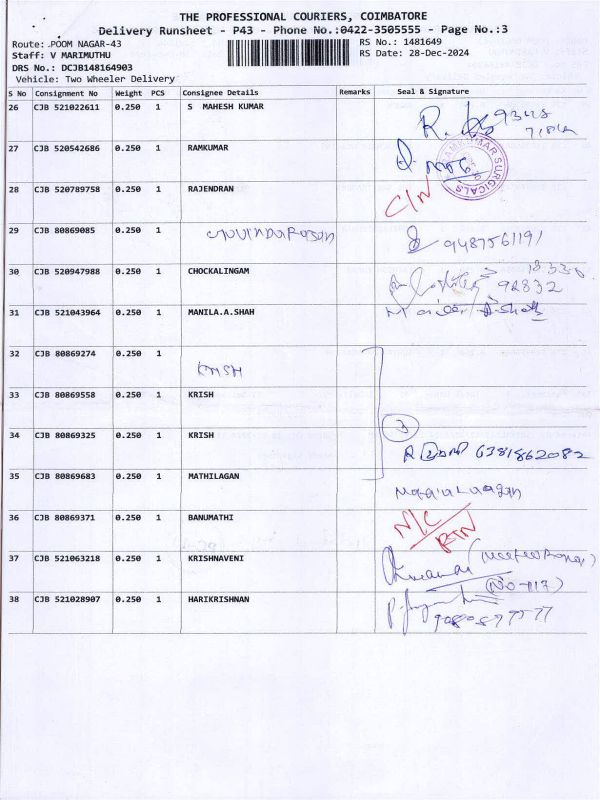 THE PROFESSIONAL COURIERS, COIMBATORE
Delivery Runsheet - P43 - Phone No.:0422-3505555 - Page No.:3
Route: .POOM NAGAR-43 RS No.: 1481649
Staff: V MARIMUTHU RS Date: 28-Dec-2024
DRS No.: DCJB148164903
Vehicle: Two Wheeler Delivery
S No Consignment No Weight PCS Consignee Details Remarks Seal & Signature
26 CJB 521022611 0.250 1 S MAHESH KUMAR
27 CJB 520542686 0.250 1 RAMKUMAR
28 CJB 520789758 0.250 1 RAJENDRAN C/N
29 CJB 80869085 0.250 1 9487561191
30 CJB 520947988 0.250 1 CHOCKALINGAM
31 CJB 521043964 0.250 1 MANILA.A.SHAH
32 CJB 80869274 0.250 1 KRISH
33 CJB 80869558 0.250 1 KRISH
34 CJB 80869325 0.250 1 KRISH 3
6381862082
35 CJB 80869683 0.250 1 MATHILAGAN
36 CJB 80869371 0.250 1 BANUMATHI N/C
RTN
37 CJB 521063218 0.250 1 KRISHNAVENI
38 CJB 521028907 0.250 1 HARIKRISHNAN